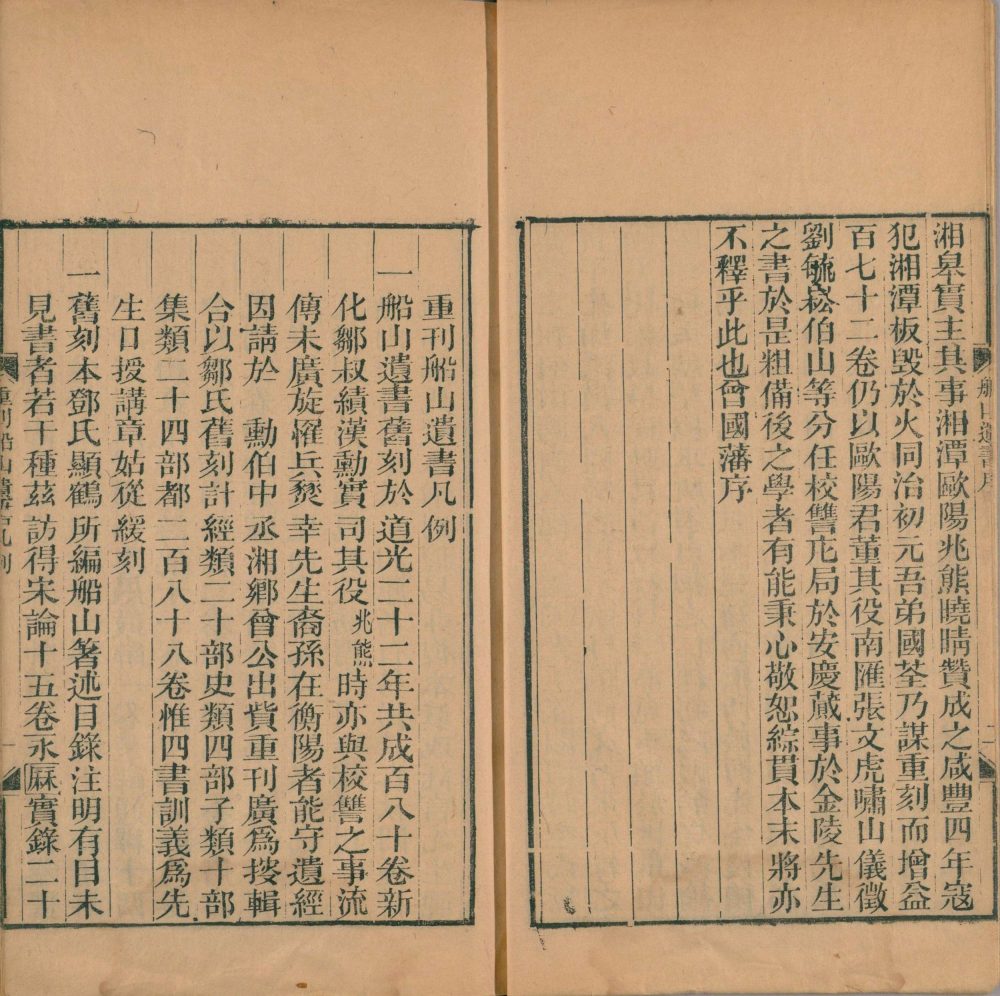 湘皋實主其事湘潭歐陽兆熊曉晴贊成之咸豐四年寇
犯湘潭板毀於火同治初元吾弟國荃乃謀重刻而增益
百七十二卷仍以歐陽君董其役南匯張文虎嘯山儀徵
劉毓崧伯山等分任校讐庀局於安慶蕆事於金陵先生
之書於是粗備後之學者有能秉心敬恕綜貫本末將亦
不釋乎此也曾國藩序
船山遺書序
二
重刊船山遺書凡例
一船山遺書舊刻於道光二十二年共成百八十卷新
化鄒叔績漢勳實司其役兆熊時亦與校讐之事流
傳未廣旋罹兵燹幸先生裔孫在衡陽者能守遺經
因請於勳伯中丞湘鄉曾公出貲重刊廣為按輯
合以鄒氏舊刻計經類二十部史類四部子類十部
集類二十四部都二百八十八卷惟四書訓義為先
生口授講章姑從緩刻
一舊刻本鄧氏顯鶴所編船山箸述目錄注明有目未
見書者若干種茲訪得宋論十五卷永厤實錄二十
重刊船山遺書凡例
一